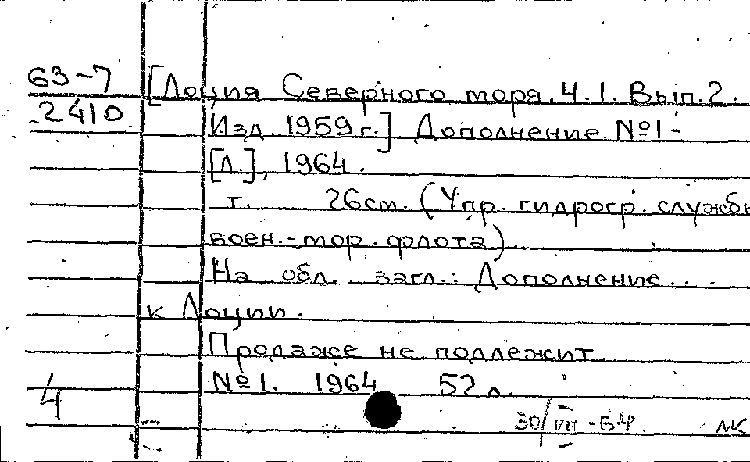 63-7 [Лоция Северного моря. Ч.1. Вып.2.
2410 Изд. 1959 г.] Дополнение №1-
[Л.], 1964.
т. 26см. (Упр. гидрогр. службы
воен.-мор. флота)
На обл. загл.: Дополнение...
к Лоции.
Продаже не подлежит
№1. 1964 52 л.
4
30/VII-64 ЛК